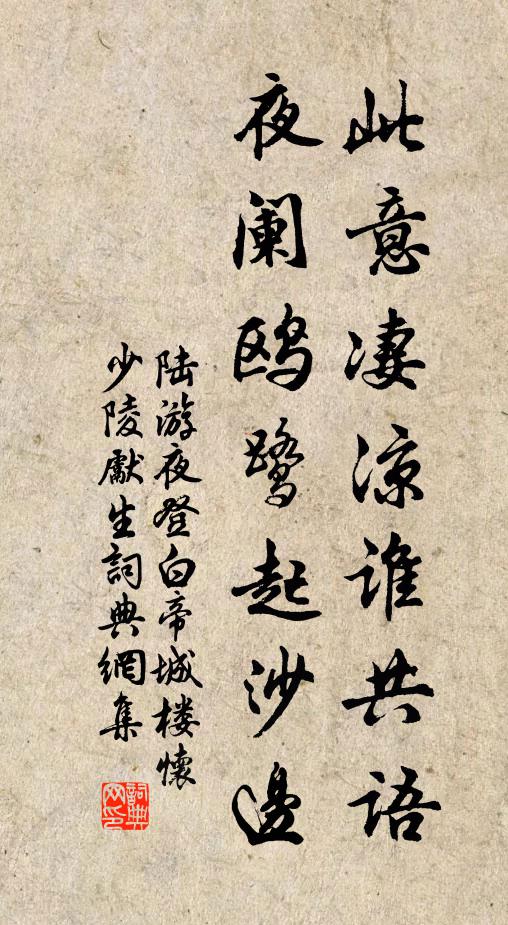 此意凄凉谁共语
夜阑鸥鹭起沙邊
陆游夜登白帝城楼懷
少陵獻生詞典網集
詞典
网印